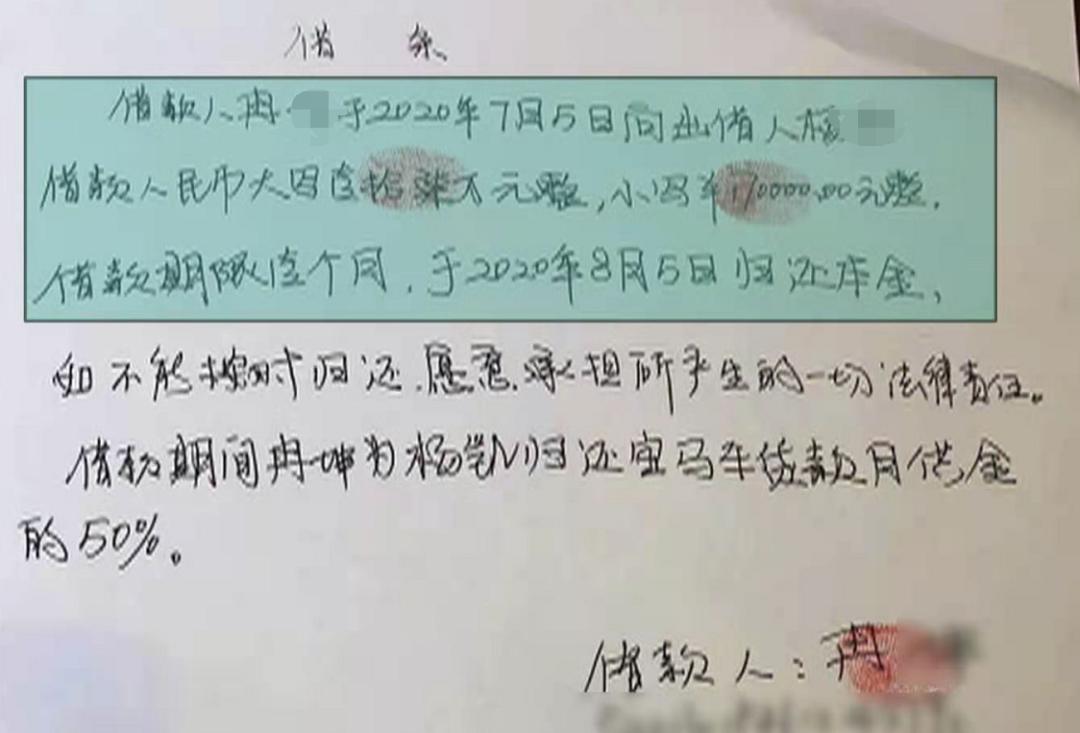 借条
借款人冉 于2020年7月5日向出借人杨
借款人民币大写壹拾柒万元整,小写¥170000.00元整,
借款期限壹个月,于2020年8月5日归还本金,
如不能按时归还,愿意承担所产生的一切法律责任。
借款期间冉坤为杨 归还宝马车贷款月供金
的50%。
借款人:冉